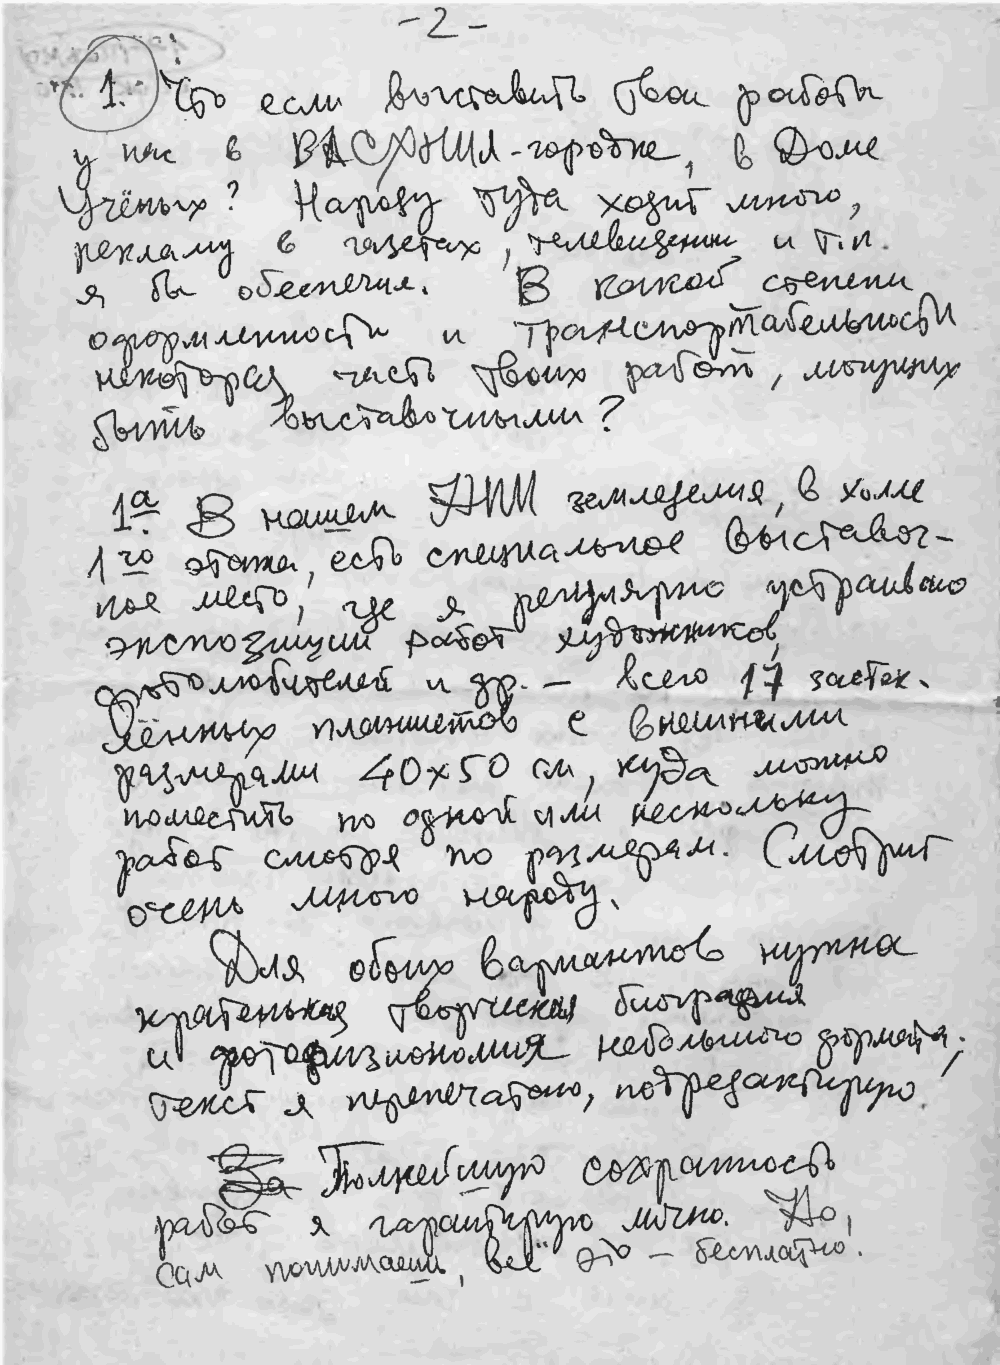 -2-
1. Что если выставить твои работы
у нас в ВАСХНИЛ-городке, в Доме
Учёных? Народу туда ходит много,
рекламу в газетах, телевидении и т.п.
я бы обеспечил. В какой степени
оформленности и транспортабельности
некоторая часть твоих работ, могущих
быть выставочными?
1а. В нашем НИИ земледелия, в холле
1го этажа, есть специальное выставоч-
ное место, где я регулярно устраиваю
экспозиции работ художников,
фотолюбителей и др. — всего 17 застек-
лённых планшетов с внешними
размерами 40х50 см, куда можно
поместить по одной или нескольку
работ смотря по размерам. Смотрит
очень много народу.
Для обоих вариантов нужна
кратенькая творческая биография
и фотофизиономия небольшого формата;
текст я перепечатаю, подредактирую.
За Полнейшую сохранность
работ я гарантирую лично. Но,
сам понимаешь, всё это — бесплатно.